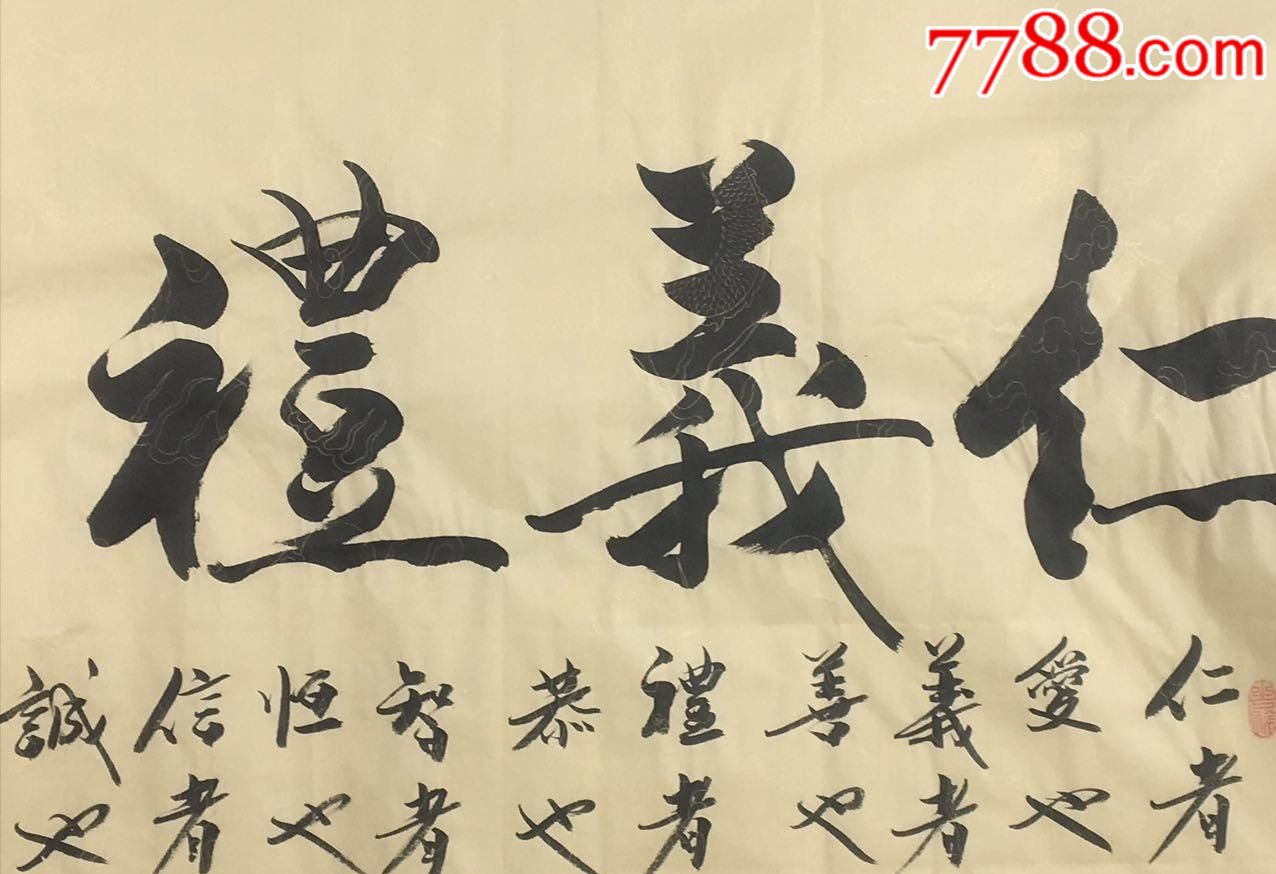 7788.com
仁義禮
仁者
愛也
義者
善也
禮者
恭也
智者
恒也
信者
誠也